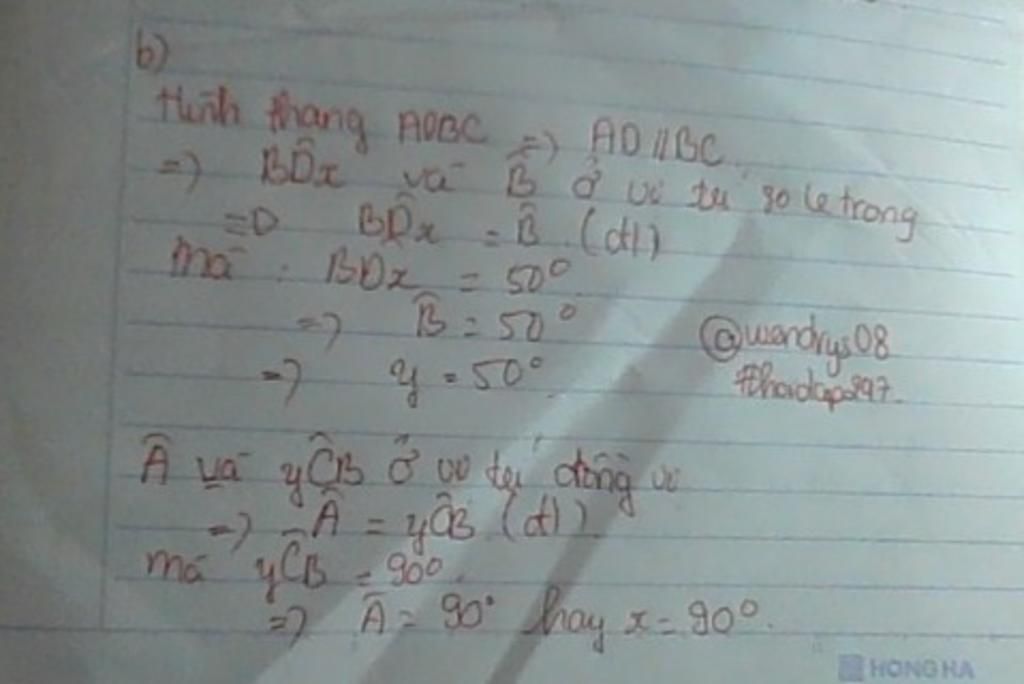 b)
Hình thang ADBC => AD//BC.
=> BD̂x và B̂ ở vị trí so le trong
=> BD̂x = B̂ (đl)
mà : BDx = 50°
=> B̂ = 50°
=> y = 50°
@wendrys08
#hoidap247.
Â và yĈB ở vị trí đồng vị
=> Â = yĈB (đl).
mà yĈB = 90°.
=> Â = 90° hay x = 90°.
HONG HA